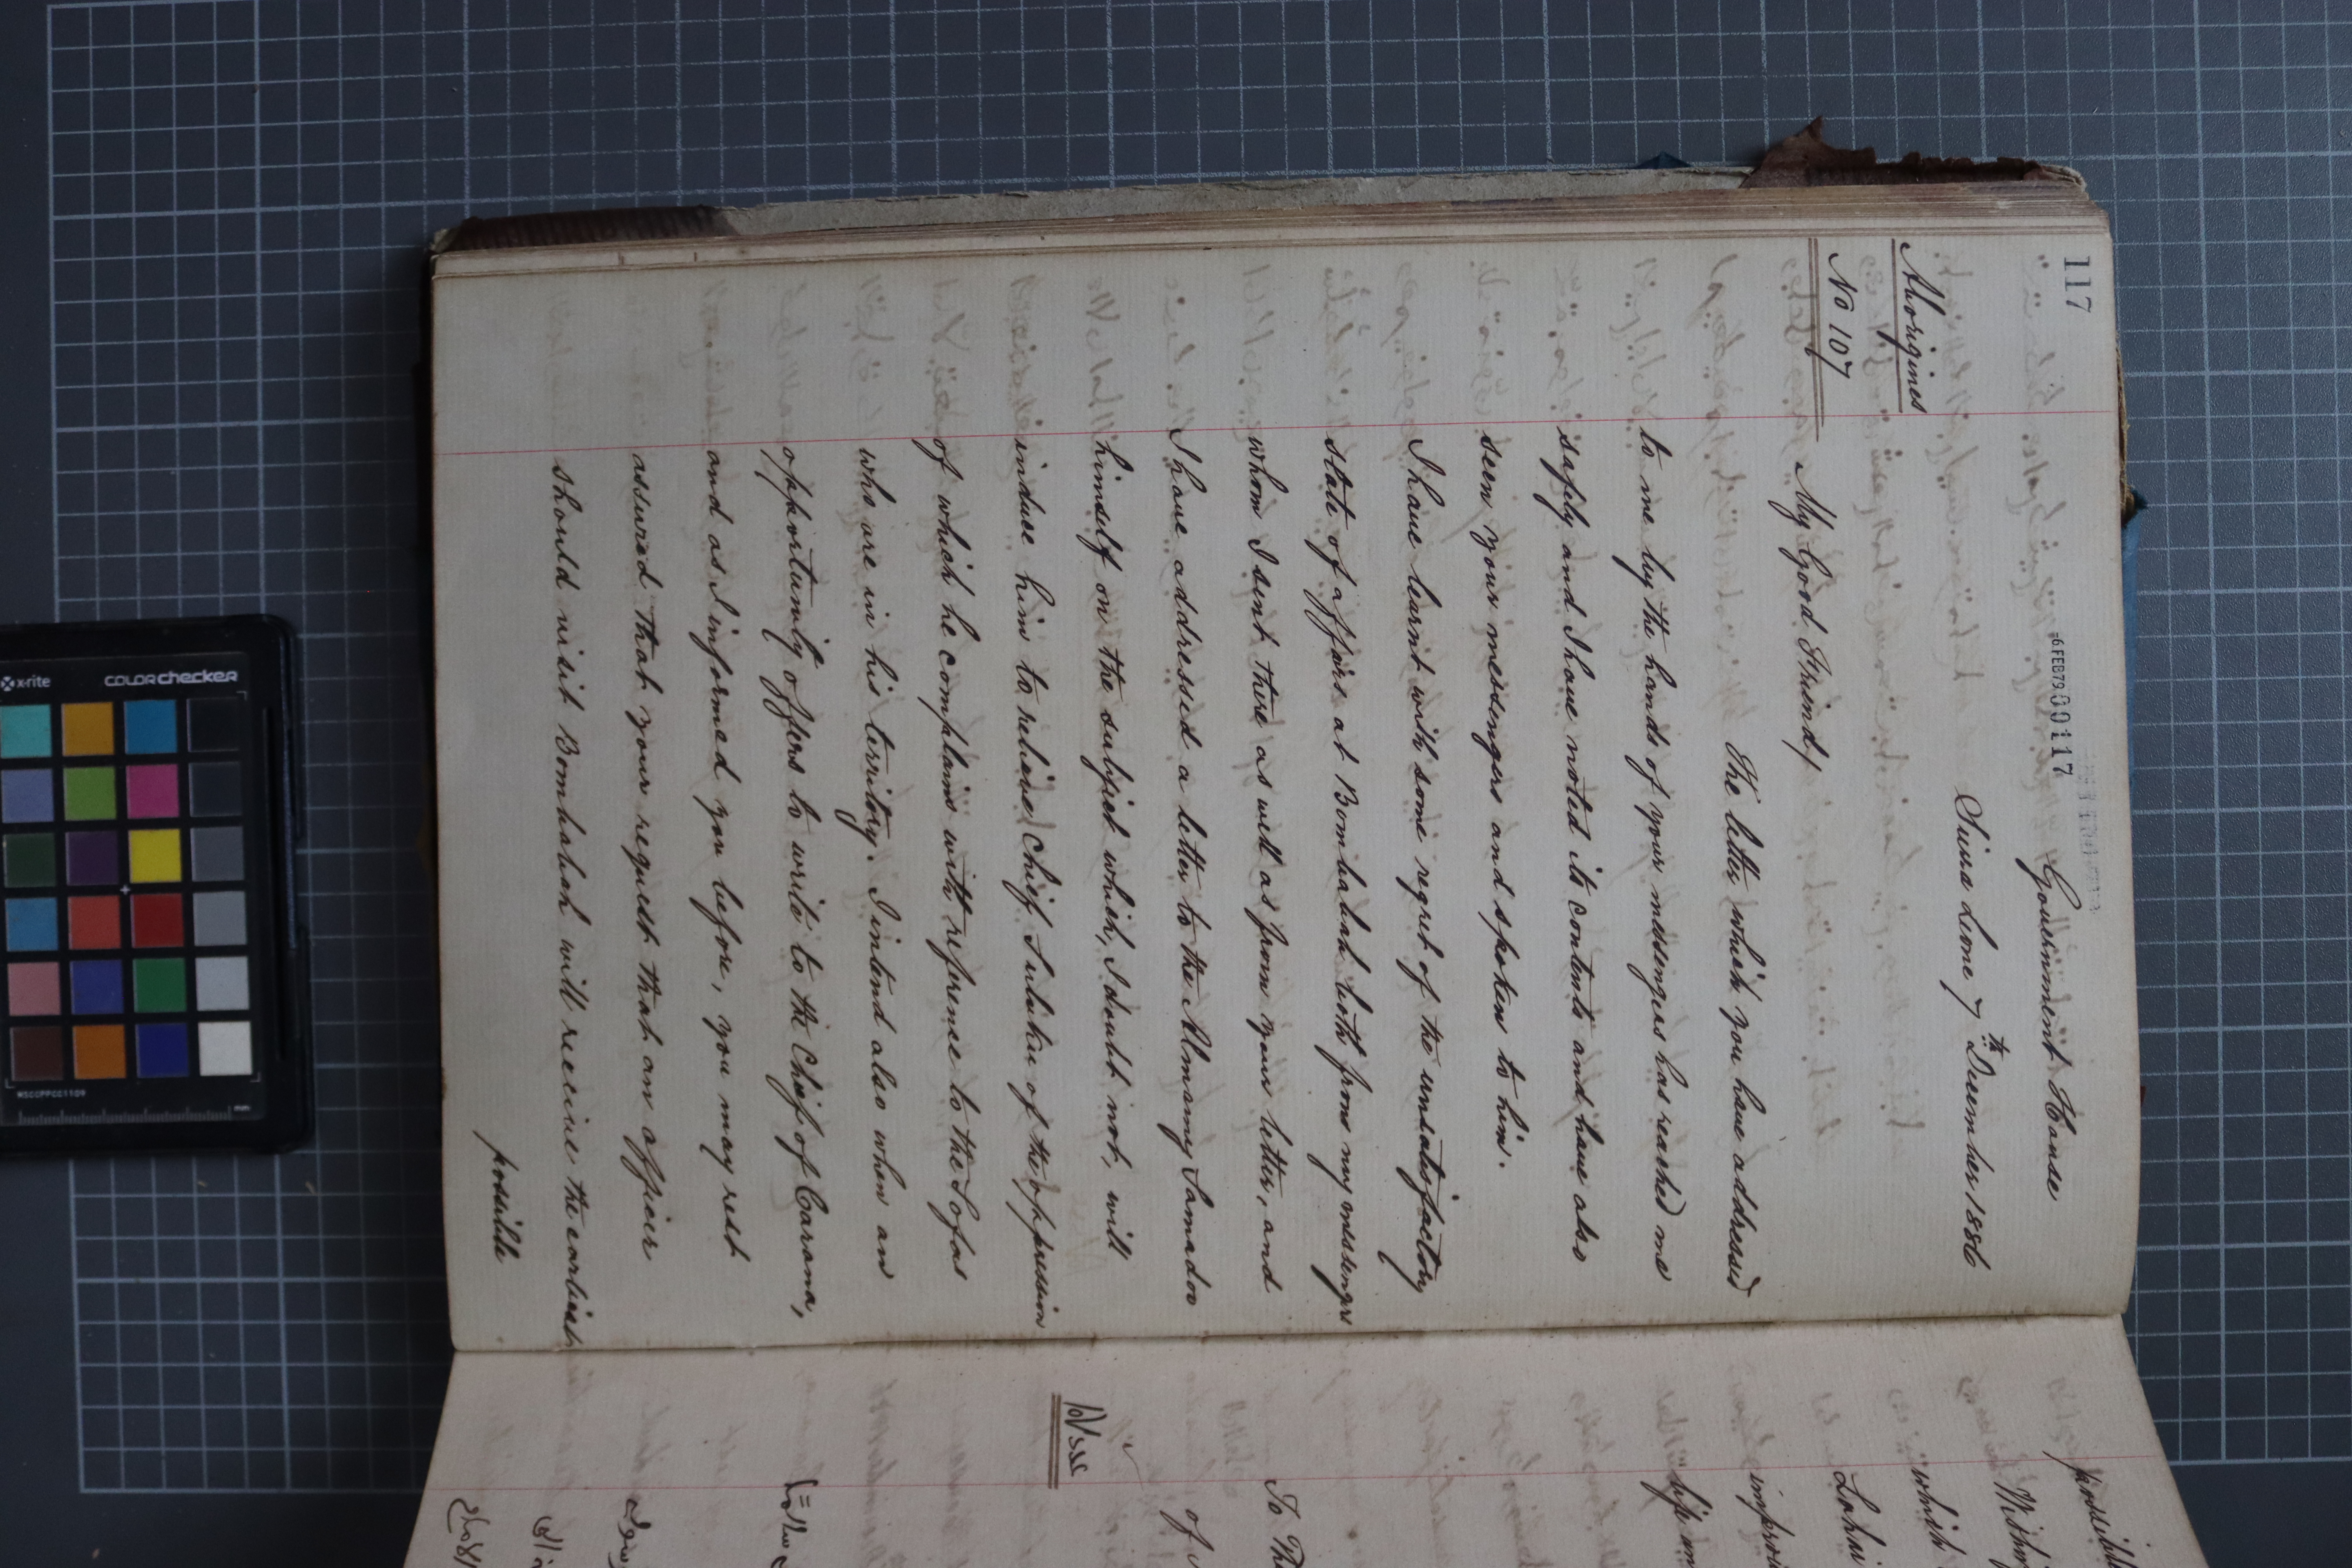 117
6 FEB79 000117
Government House
Sierra Leone 7th December 1886
Aborigines
No 107
My Good Friend,
The letter which you have addressed
to me by the hands of your messengers has reached me
safely and I have noted its contents and have also
seen your messengers and spoken to him.
I have learnt with some regret of the unsatisfactory
state of affairs at Bombalah both from my messengers
whom I sent there as well as from your letter, and
I have addressed a letter to the Almamy Samadoo
himself on the subject which, I doubt not, will
induce him to relieve Chief Suluku of the oppression
of which he complains with reference to the Sofas
who are in his territory. I intend also when an
opportunity offers to write to the Chief of Carama,
and as I informed you before, you may rest
assured that your request that an officer
should visit Bombalah will receive the earliest
possible
possible
which
Lahai
To The
of
x-rite
colorchecker
MSCCPPCC1109
mm